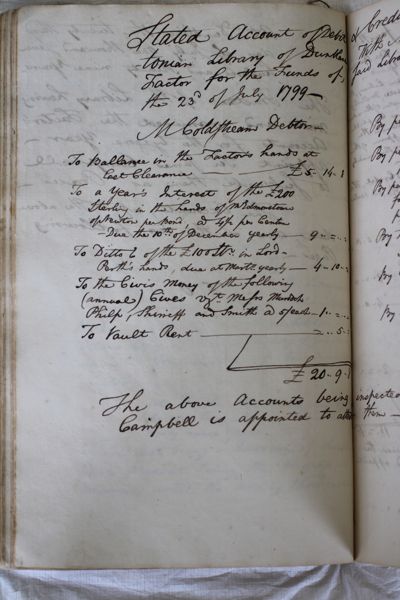 Stated Account of Debit
tonian Library of Dunblan
Factor for the Funds of
the 23d of July 1799 —
M Coldstream Debtor —
To Ballance in the Factor's hands at
last Clearance — £5 . 14 . 3
To a Year's Interest of the £200
Sterling in the hands of Mr Edmonstone
of Newton per Bond, @ 4½ per Centum
Due the 10th of December yearly — 9 " — " —
To Ditto of the £100 in Lord
Perth's hands, due at yearly — 4 . 10 . —
To the Civis Money of the following
(annual) Cives vizt. Messrs Murdoch
Philp, Shirreff and Smith @ 5/ each — 1 . — . —
To Vault Rent — " . 5 .
£ 20 . 9 .
The above Accounts being
Campbell is appointed to
& Credi
With
said Libra
By p
By p
for
By
By
inspected
them —